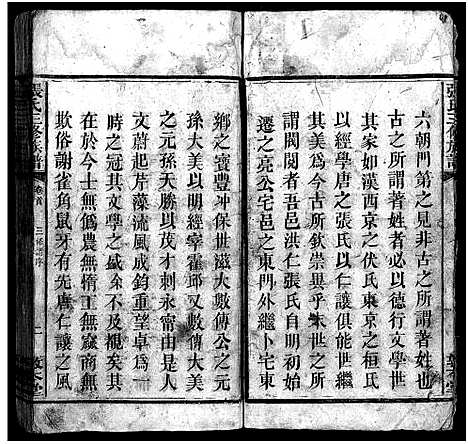 六朝門第之見非古之所謂著姓也
古之所謂著姓者必以德行文學世
其家如漢西京之伏氏東京之桓氏
以經學唐之張氏以仁讓俱能世繼
其美為末世之所欽崇異乎
吾邑洪仁張氏自明初
遷之亮公宅邑之東門外繼卜宅東
鄉之寶豐沖保世滋大數傳公之元
孫大美以明經宰霍邱又數傳大美
之元孫天勝以茂才刺永甯由是人
文蔚起芹藻流風成鈞重望卓為一
時之冠其文學之盛余不及視矣其
在於今士無偽農無惰工無窳商無
欺俗謝雀角鼠牙有先唐仁讓之風
張氏三修族譜
卷首
三修譜序